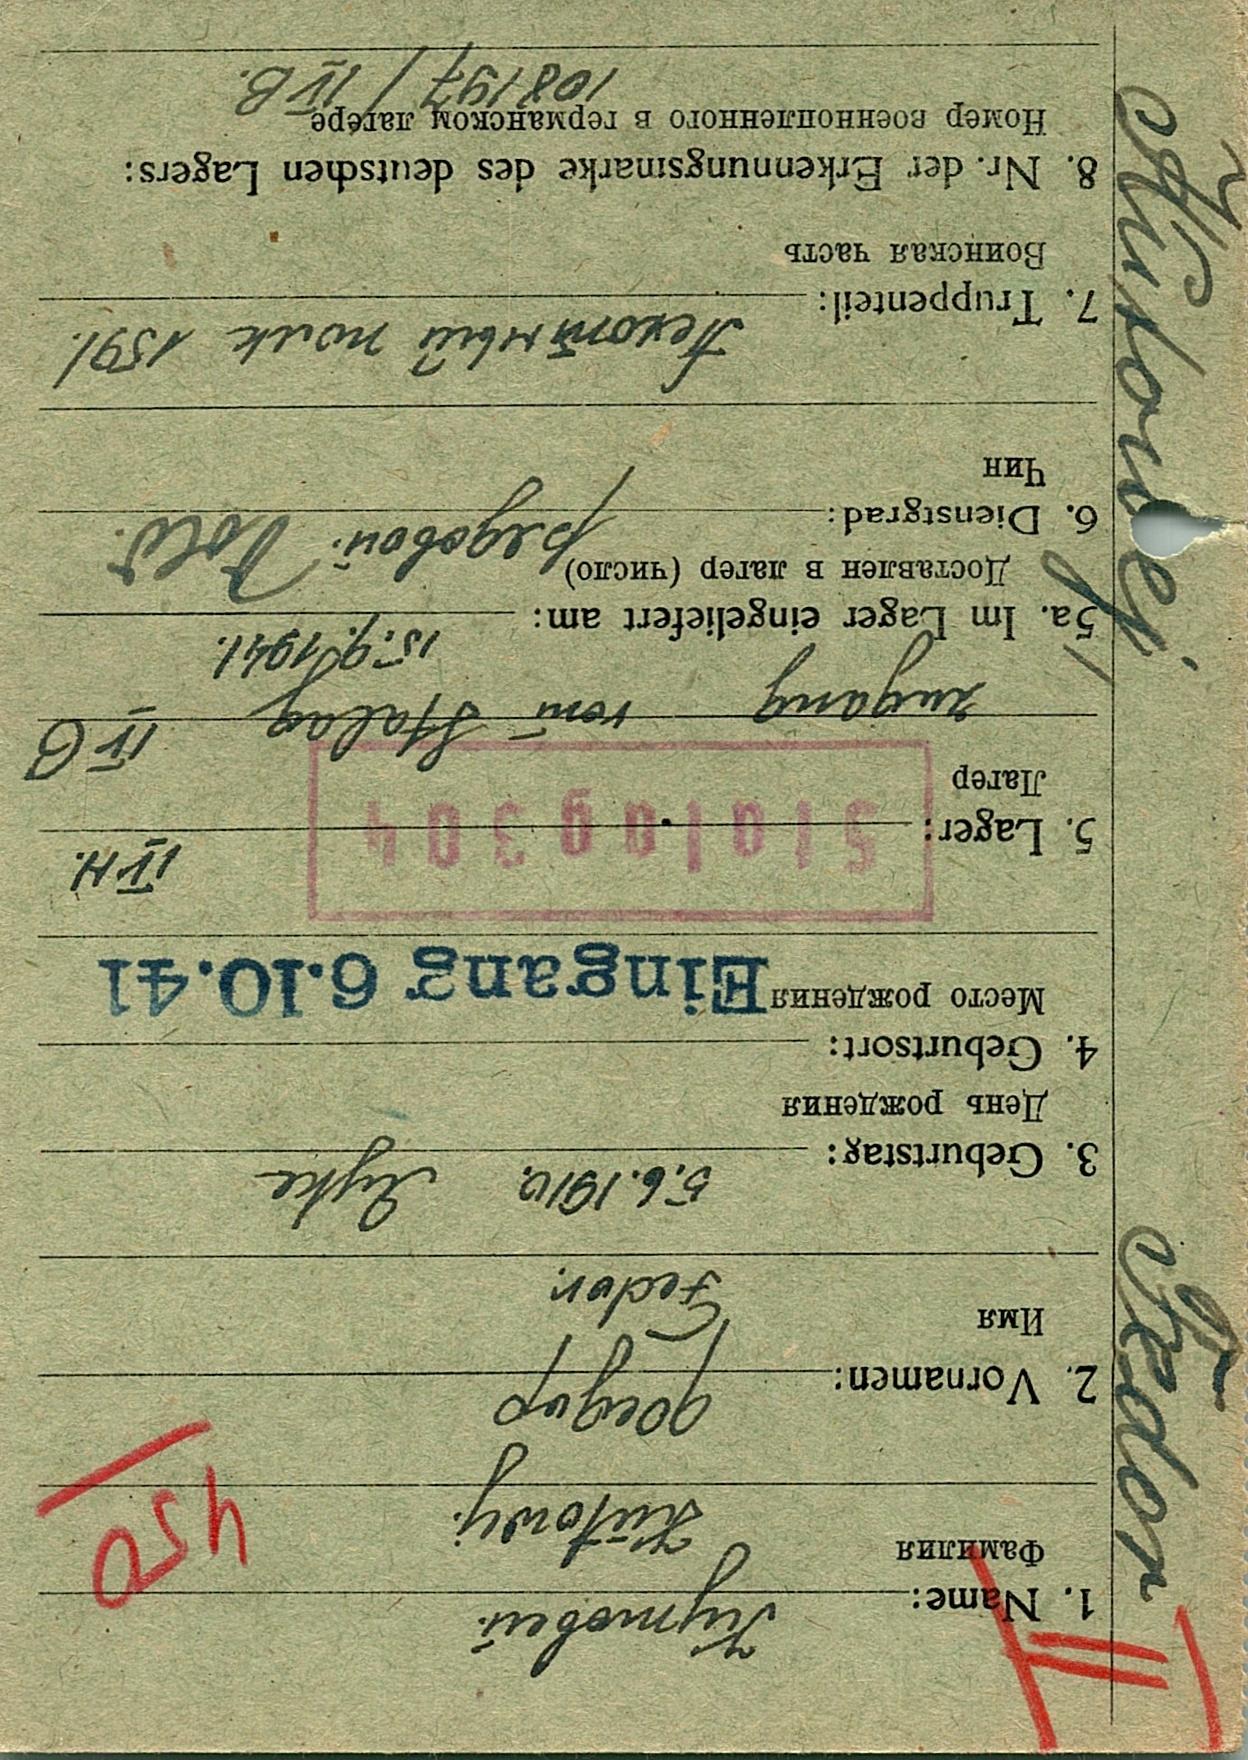 1. Name: Кутовей
Фамилия Kutowej.
2. Vornamen: Федор
Имя Fedor.
3. Geburtstag: 5.6.1910.
День рождения
4. Geburtsort:
Место рождения Eingang 6.10.41
5. Lager: Stalag 304 IV H.
Лагер
zugang vom Stalag IV B
5a. Im Lager eingeliefert am: 15.9.1941.
Доставлен в лагер (число)
6. Dienstgrad: рядовой. Sold.
Чин
7. Truppenteil: Пехотный полк 1591.
Воинская часть
8. Nr. der Erkennungsmarke des deutschen Lagers:
Номер военнопленного в германском лагере
108197/IV B.
Fedor
450
II